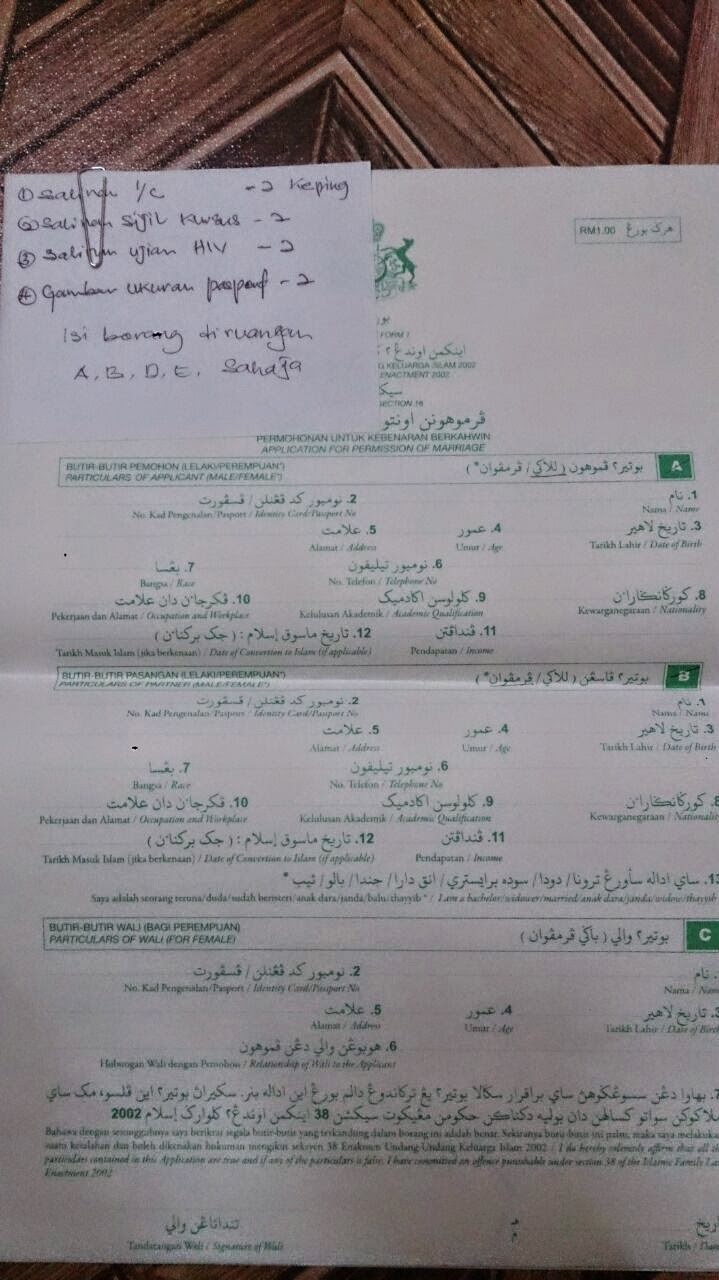 ① Salinan I/C - 2 Keping
② Salinan Sijil Kursus - 2
③ Salinan ujian HIV - 2
④ Gambar ukuran pasport - 2
Isi borang diruangan
A, B, D, E, Sahaja
هرݢ بورڠ RM1.00
FORM 1
KELUARGA ISLAM 2002
ENACTMENT 2002
SECTION 16
ڤرموهونن اونتو
PERMOHONAN UNTUK KEBENARAN BERKAHWIN
APPLICATION FOR PERMISSION OF MARRIAGE
BUTIR-BUTIR PEMOHON (LELAKI/PEREMPUAN*)
PARTICULARS OF APPLICANT (MALE/FEMALE*)
بوتير٢ ڤموهون (للاکي/ ڤرمڤوان*)
A
1. نام
Nama / Name
2. نومبور کد ڤڠنلن/ ڤسڤورت
No. Kad Pengenalan/Pasport / Identity Card/Passport No
3. تاريخ لاهير
Tarikh Lahir / Date of Birth
4. عمور
Umur / Age
5. علامت
Alamat / Address
6. نومبور تيليفون
No. Telefon / Telephone No
7. بڠسا
Bangsa / Race
8. کورݢانݢاراءن
Kewarganegaraan / Nationality
9. کلولوسن اکادميک
Kelulusan Akademik / Academic Qualification
10. ڤکرجاءن دان علامت
Pekerjaan dan Alamat / Occupation and Workplace
11. ڤنداڤتن
Pendapatan / Income
12. تاريخ ماسوق إسلام : ( جک برکناءن )
Tarikh Masuk Islam (jika berkenaan) / Date of Conversion to Islam (if applicable)
BUTIR-BUTIR PASANGAN (LELAKI/PEREMPUAN*)
PARTICULARS OF PARTNER (MALE/FEMALE*)
بوتير٢ ڤاسڠن ( للاکي/ ڤرمڤوان*)
B
1. نام
Nama / Name
2. نومبور کد ڤڠنلن/ ڤسڤورت
No. Kad Pengenalan/Pasport / Identity Card/Passport No
3. تاريخ لاهير
Tarikh Lahir / Date of Birth
4. عمور
Umur / Age
5. علامت
Alamat / Address
6. نومبور تيليفون
No. Telefon / Telephone No
7. بڠسا
Bangsa / Race
8. کورݢانݢاراءن
Kewarganegaraan / Nationality
9. کلولوسن اکادميک
Kelulusan Akademik / Academic Qualification
10. ڤکرجاءن دان علامت
Pekerjaan dan Alamat / Occupation and Workplace
11. ڤنداڤتن
Pendapatan / Income
12. تاريخ ماسوق إسلام : ( جک برکناءن )
Tarikh Masuk Islam (jika berkenaan) / Date of Conversion to Islam (if applicable)
13. ساي اداله سأورڠ ترونا/ دودا/ سوده برايستري/ انق دارا/ جندا/ بالو/ ثيب *
Saya adalah seorang teruna/duda/sudah beristeri/anak dara/janda/balu/thayyib * / I am a bachelor/widower/married/anak dara/janda/widow/thayyib
BUTIR-BUTIR WALI (BAGI PEREMPUAN)
PARTICULARS OF WALI (FOR FEMALE)
بوتير٢ والي ( باݢي ڤرمڤوان )
C
نام
Nama / Name
2. نومبور کد ڤڠنلن/ ڤسڤورت
No. Kad Pengenalan/Pasport / Identity Card/Passport No
3. تاريخ لاهير
Tarikh Lahir / Date of Birth
4. عمور
Umur / Age
5. علامت
Alamat / Address
6. هوبوڠن والي دڠن ڤموهون
Hubungan Wali dengan Pemohon / Relationship of Wali to the Applicant
7. بهاوا دڠن سسوڠݢوهڽ ساي براقرار سݢالا بوتير٢ يڠ ترکاندوڠ دالم بورڠ اين اداله بنر. سکيراڽ بوتير٢ اين ڤلسو، مک ساي
ملاکوکن سواتو کسالهن دان بوليه دکناکن حکومن مڠيکوت سيکشن 38 اينکمن اوندڠ٢ کلوارݢ إسلام 2002
Bahawa dengan sesungguhnya saya berikrar segala butir-butir yang terkandung dalam borang ini adalah benar. Sekiranya butir-butir ini palsu, maka saya melakukan
suatu kesalahan dan boleh dikenakan hukuman mengikut seksyen 38 Enakmen Undang-Undang Keluarga Islam 2002 / I do hereby solemnly affirm that all the
particulars contained in this Application are true and if any of the particulars is false, I have committed an offence punishable under section 38 of the Islamic Family La
Enactment 2002
تنداتاڠن والي
Tandatangan Wali / Signature of Wali
تاريخ
Tarikh / Date